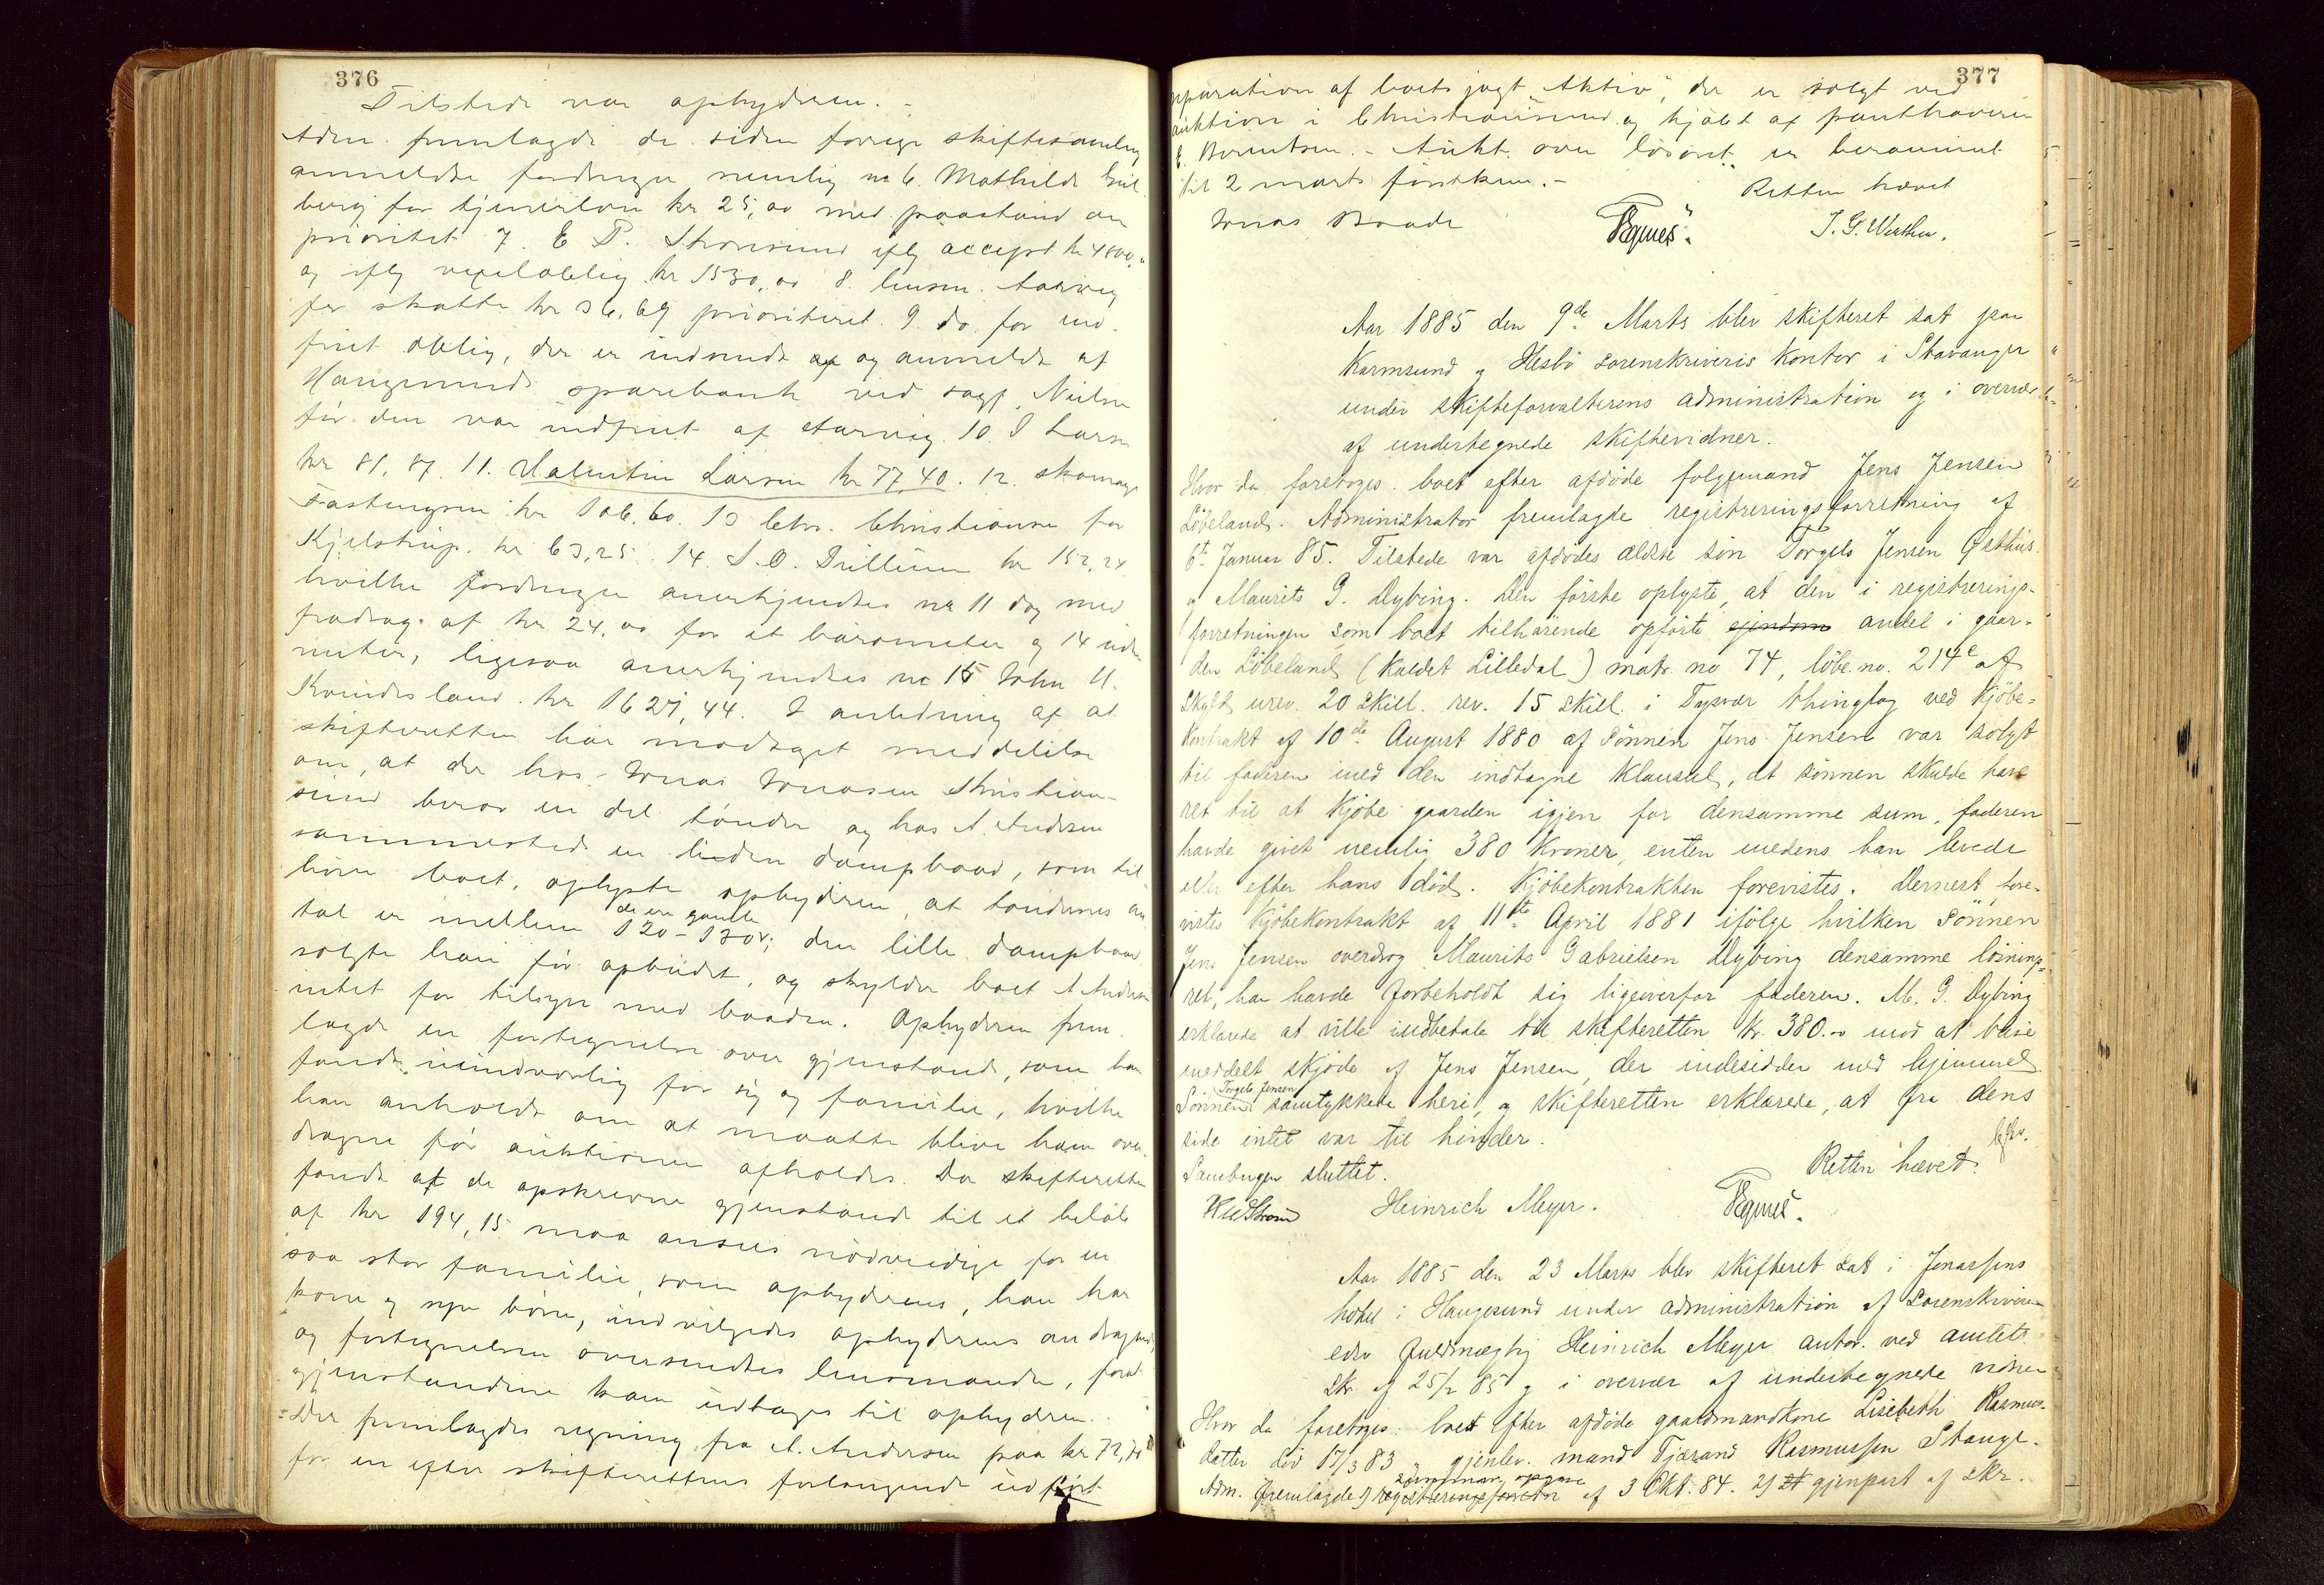 376
Tilstede var opbyderen. -
Adm. fremlagde de siden forrige skiftesamling
anmeldte fordringer nemlig no 6. Mathilde
berg for tjenerløn kr 25,00 med paastand om
prioritet 7. E P. iflg accept kr 4800,"
og iflg vexeloblig. kr 1530,00 8. lensm. Aarvig
for skatte kr 36,69 prioriteret. 9 do. for ind-
friet oblig, der er indsendt og anmeldt af
Haugesunds sparebank ved sagf. Nielsen
før den var indfriet af Aarvig. 10. I Larsen
kr 81,87. 11. Valentin Larsen kr 77,40. 12. skomager
kr 106,60. 13 Chr. Christiansen for
Kjelstrup. kr 63,25. 14. S.O. kr 152,24
hvilke fordringer anerkjendtes no 11 dog med
fradrag af kr 24,00 for et barometer og 14 uden
renter, ligesaa anerkjendtes no 15 John H.
Kvindesland. kr 1627,44. I anledning af at
skifteretten har modtaget meddelelse
om, at der hos Jonas Jonasen Kristian-
sund beror en del tønder og hos A. Andersen
sammesteds en liden dampbaad, som til-
hører boet, oplyste opbyderen, at tøndernes an-
tal er mellem 120-130; de ere gamle den lille dampbaad
solgte han før opbudet, og skylder boet A Andersen
intet for tilsyn med baaden. Opbyderen frem-
lagde en fortegnelse over gjenstande, som han
fandt uundværlig for sig og familie, hvilke
han anholdt om at maatte blive ham over-
dragne før auktionen afholdes. Da skifteretten
fandt at de opskrevne gjenstande til et beløb
af kr 194,15 maa ansees nødvendige for en
saa stor familie, som opbyderens, han har
kone og syv børn, indvilgedes opbyderens andragende,
og fortegnelsen oversendtes lensmanden, forat
gjenstandene kan udtages til opbyderen.
Der fremlagdes regning fra A. Andersen paa kr 72,
for en efter skifterettens forlangende udført
377
reparation af boets jagt "Aktiv", der er solgt ved
auktion i Christiansund og kjøbt af panthaveren
E. Berentsen. - Aukt. over løsøret er berammet
til 2 marts førstkom. -
Retten hævet
Jonas Baade
J. G. Werthen.
Aar 1885 den 9de Marts blev skifteret sat paa
Karmsund og Hesbö sorenskriveris kontor i Stavanger
under skifteforvalterens administration og i overvær
af undertegnede skiftevidner.
Hvor da foretoges boet efter afdøde følgemand Jens Jensen
Löbeland. Administrator fremlagde registreringsforretning af
6te Januar 85. Tilstede var afdødes ældste søn Torgels Jensen Østhus
og Maurits G. Dybing. Den første oplyste, at den i registrerings-
forretningen som boet tilhørende opførte ejendom andel i gaar-
den Löbeland (kaldet Lilledal) matr. no 74, löbe. no. 214e af
skyld urev. 20 skill. rev. 15 skill. i Tysvær thinglag ved kjöbe-
kontrakt af 10de August 1880 af sønnen Jens Jensen var solgt
til faderen med den indtagne klausul, at sønnen skulde have
ret til at kjöbe gaarden igjen for densamme sum, faderen
havde givet nemlig 380 kroner, enten medens han levede
eller efter hans død. Kjöbekontrakten forevistes. Dernæst fore-
vistes kjöbekontrakt af 11te April 1881 ifölge hvilken sönnen
Jens Jensen overdrog Maurits Gabrielsen Dybing densamme lösnings-
ret, han havde forbeholdt sig ligeoverfor faderen. M. G. Dybing
erklærede at ville indbetale til skifteretten kr. 380.00 mod at blive
meddelt skjöde af Jens Jensen, der indesidder med hjemmel.
Sönnen Torgels Jensen samtykkede heri, og skifteretten erklærede, at fra dens
side intet var til hinder.
Samlingen sluttet.
Retten hævet.
Heinrich Meyer.
Aar 1885 den 23 Marts blev skifteret sat i Jonassens
hotel i Haugesund under administration af Sorenskriverens
edsv fuldmægtig Heinrich Meyer autor. ved amtets
skr. af 25/2 85 og i overvær af undertegnede vidner
Hvor da foretoges: boet efter afdøde gaardmandskone Lisebeth Rasmus-
datter död 17/3 83, gjenlev. mand Tjærand Rasmussen Stange.
Adm. fremlagde 1) registreringsforretn summar. opgave af 3 Okt. 84. 2) gjenpart af skr.